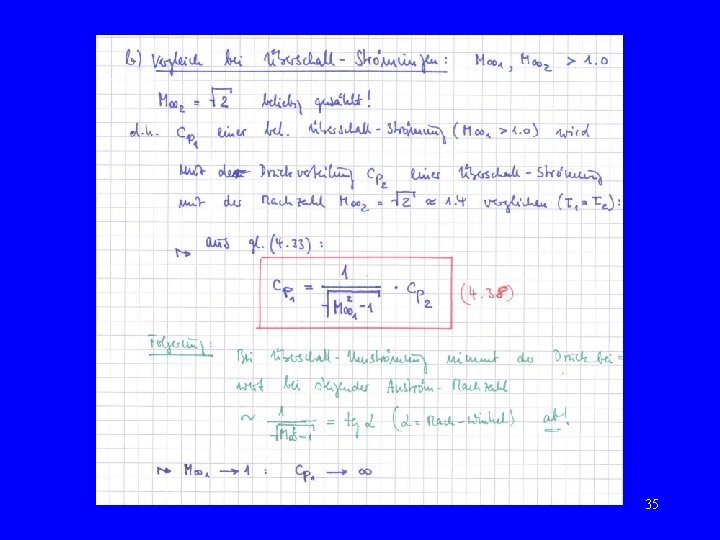 b) Vergleich bei Überschall-Strömungen: M∞₁, M∞₂ > 1.0
M∞₂ = √2 beliebig gewählt!
d.h. Cp₁ einer bel. Überschall-Strömung (M∞₁ > 1.0) wird
mit der Druckverteilung Cp₂ einer Überschall-Strömung
mit der Machzahl M∞₂ = √2 ≈ 1.4 verglichen (τ₁ = τ₂):
↝ aus Gl. (4.33) :
Cp₁ = 1/√(M∞₁² - 1) · Cp₂ (4.38)
Folgerung: Bei Überschall-Umströmung nimmt der Druckbei=
wert bei steigender Anström-Machzahl
~ 1/√(M∞² - 1) = tg α (α = Mach-Winkel) ab!
↝ M∞₁ → 1 : Cp₁ → ∞
35